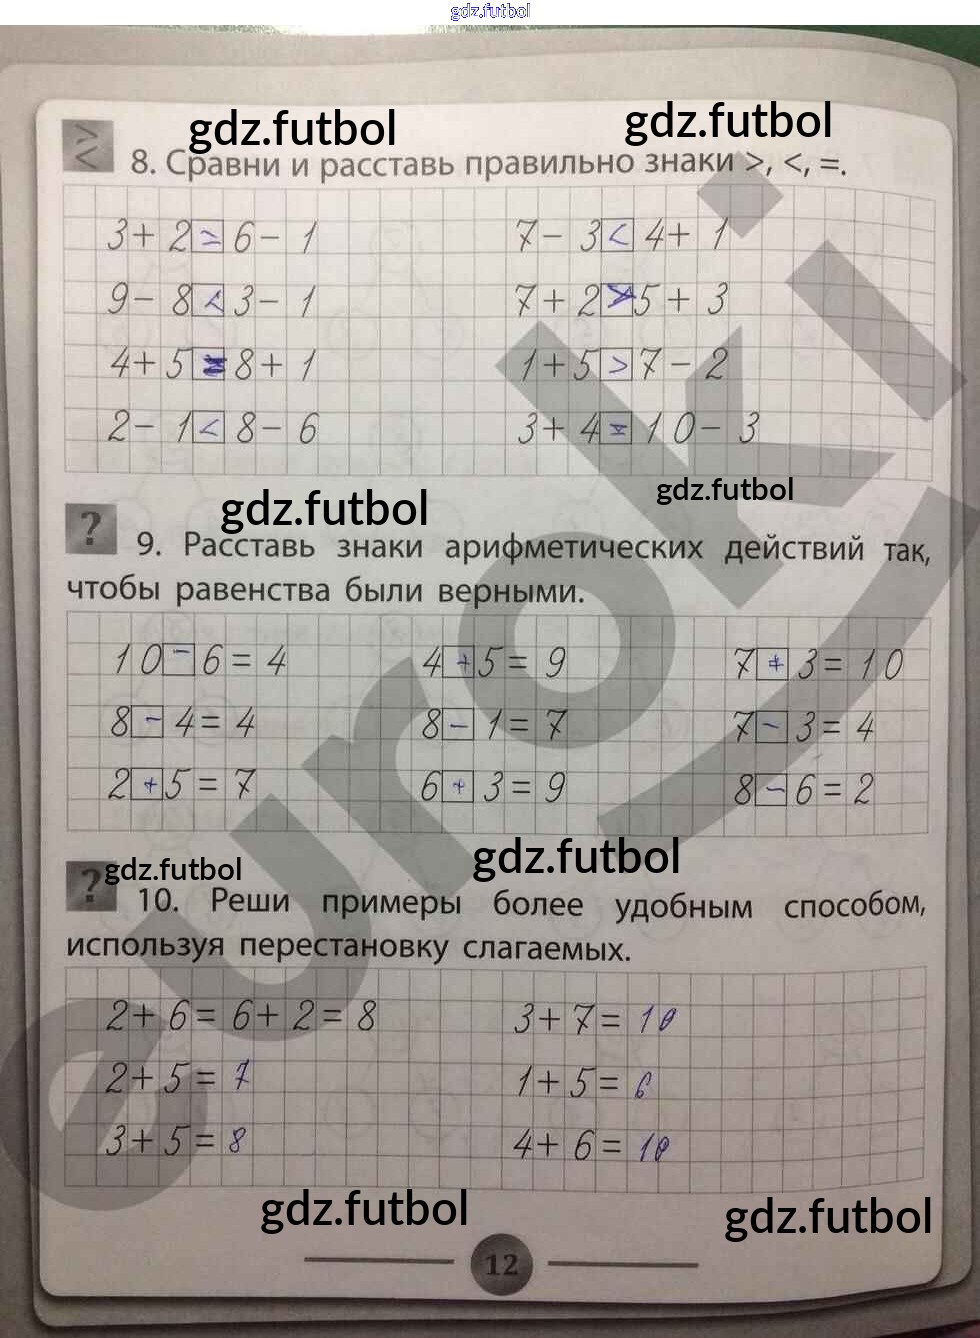 gdz.futbol
gdz.futbol gdz.futbol
8. Сравни и расставь правильно знаки >, <, =.
3 + 2 = 6 - 1 7 - 3 < 4 + 1
9 - 8 < 3 - 1 7 + 2 > 5 + 3
4 + 5 = 8 + 1 1 + 5 > 7 - 2
2 - 1 < 8 - 6 3 + 4 = 10 - 3
gdz.futbol gdz.futbol
? 9. Расставь знаки арифметических действий так,
чтобы равенства были верными.
10 - 6 = 4 4 + 5 = 9 7 + 3 = 10
8 - 4 = 4 8 - 1 = 7 7 - 3 = 4
2 + 5 = 7 6 + 3 = 9 8 - 6 = 2
gdz.futbol gdz.futbol
? 10. Реши примеры более удобным способом,
используя перестановку слагаемых.
2 + 6 = 6 + 2 = 8 3 + 7 = 10
2 + 5 = 7 1 + 5 = 6
3 + 5 = 8 4 + 6 = 10
gdz.futbol gdz.futbol
12
euroki